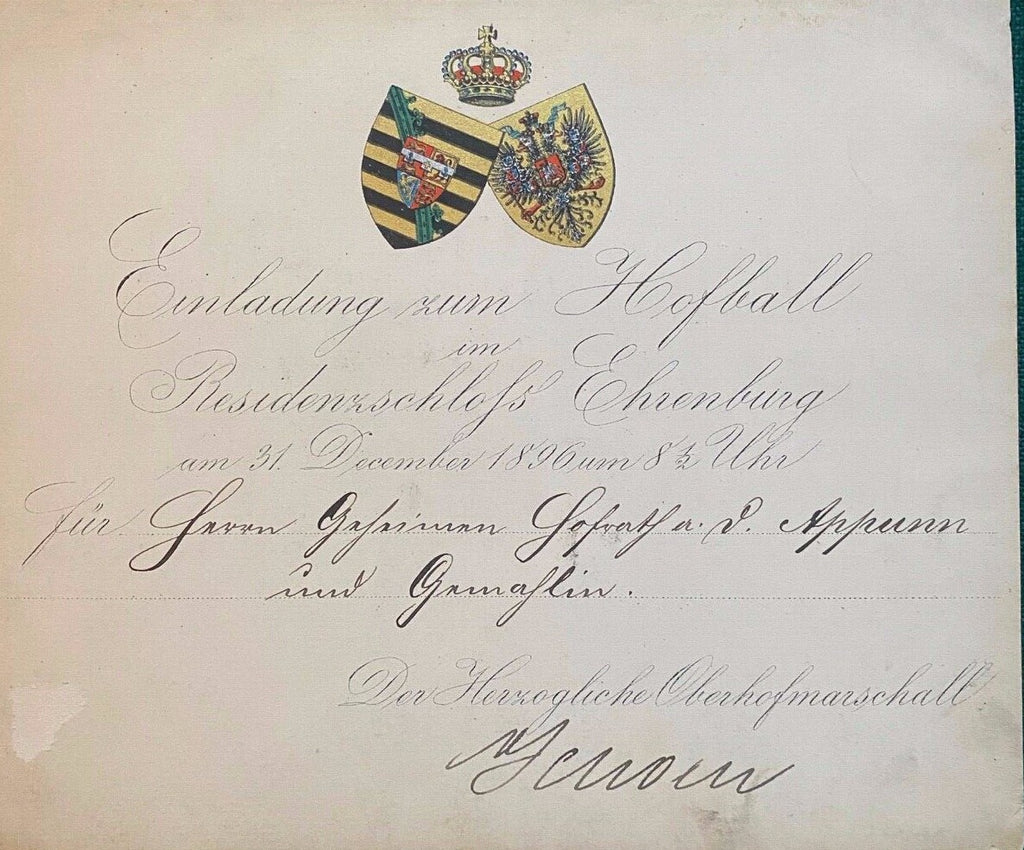 Einladung zum Hofball
im
Residenzschloſs Ehrenburg
am 31. December 1896 um 8 ½ Uhr
für Herrn Geheimen Hofrath a. D. Appunn
und Gemahlin.
Der Herzogliche Oberhofmarschall
Schoen